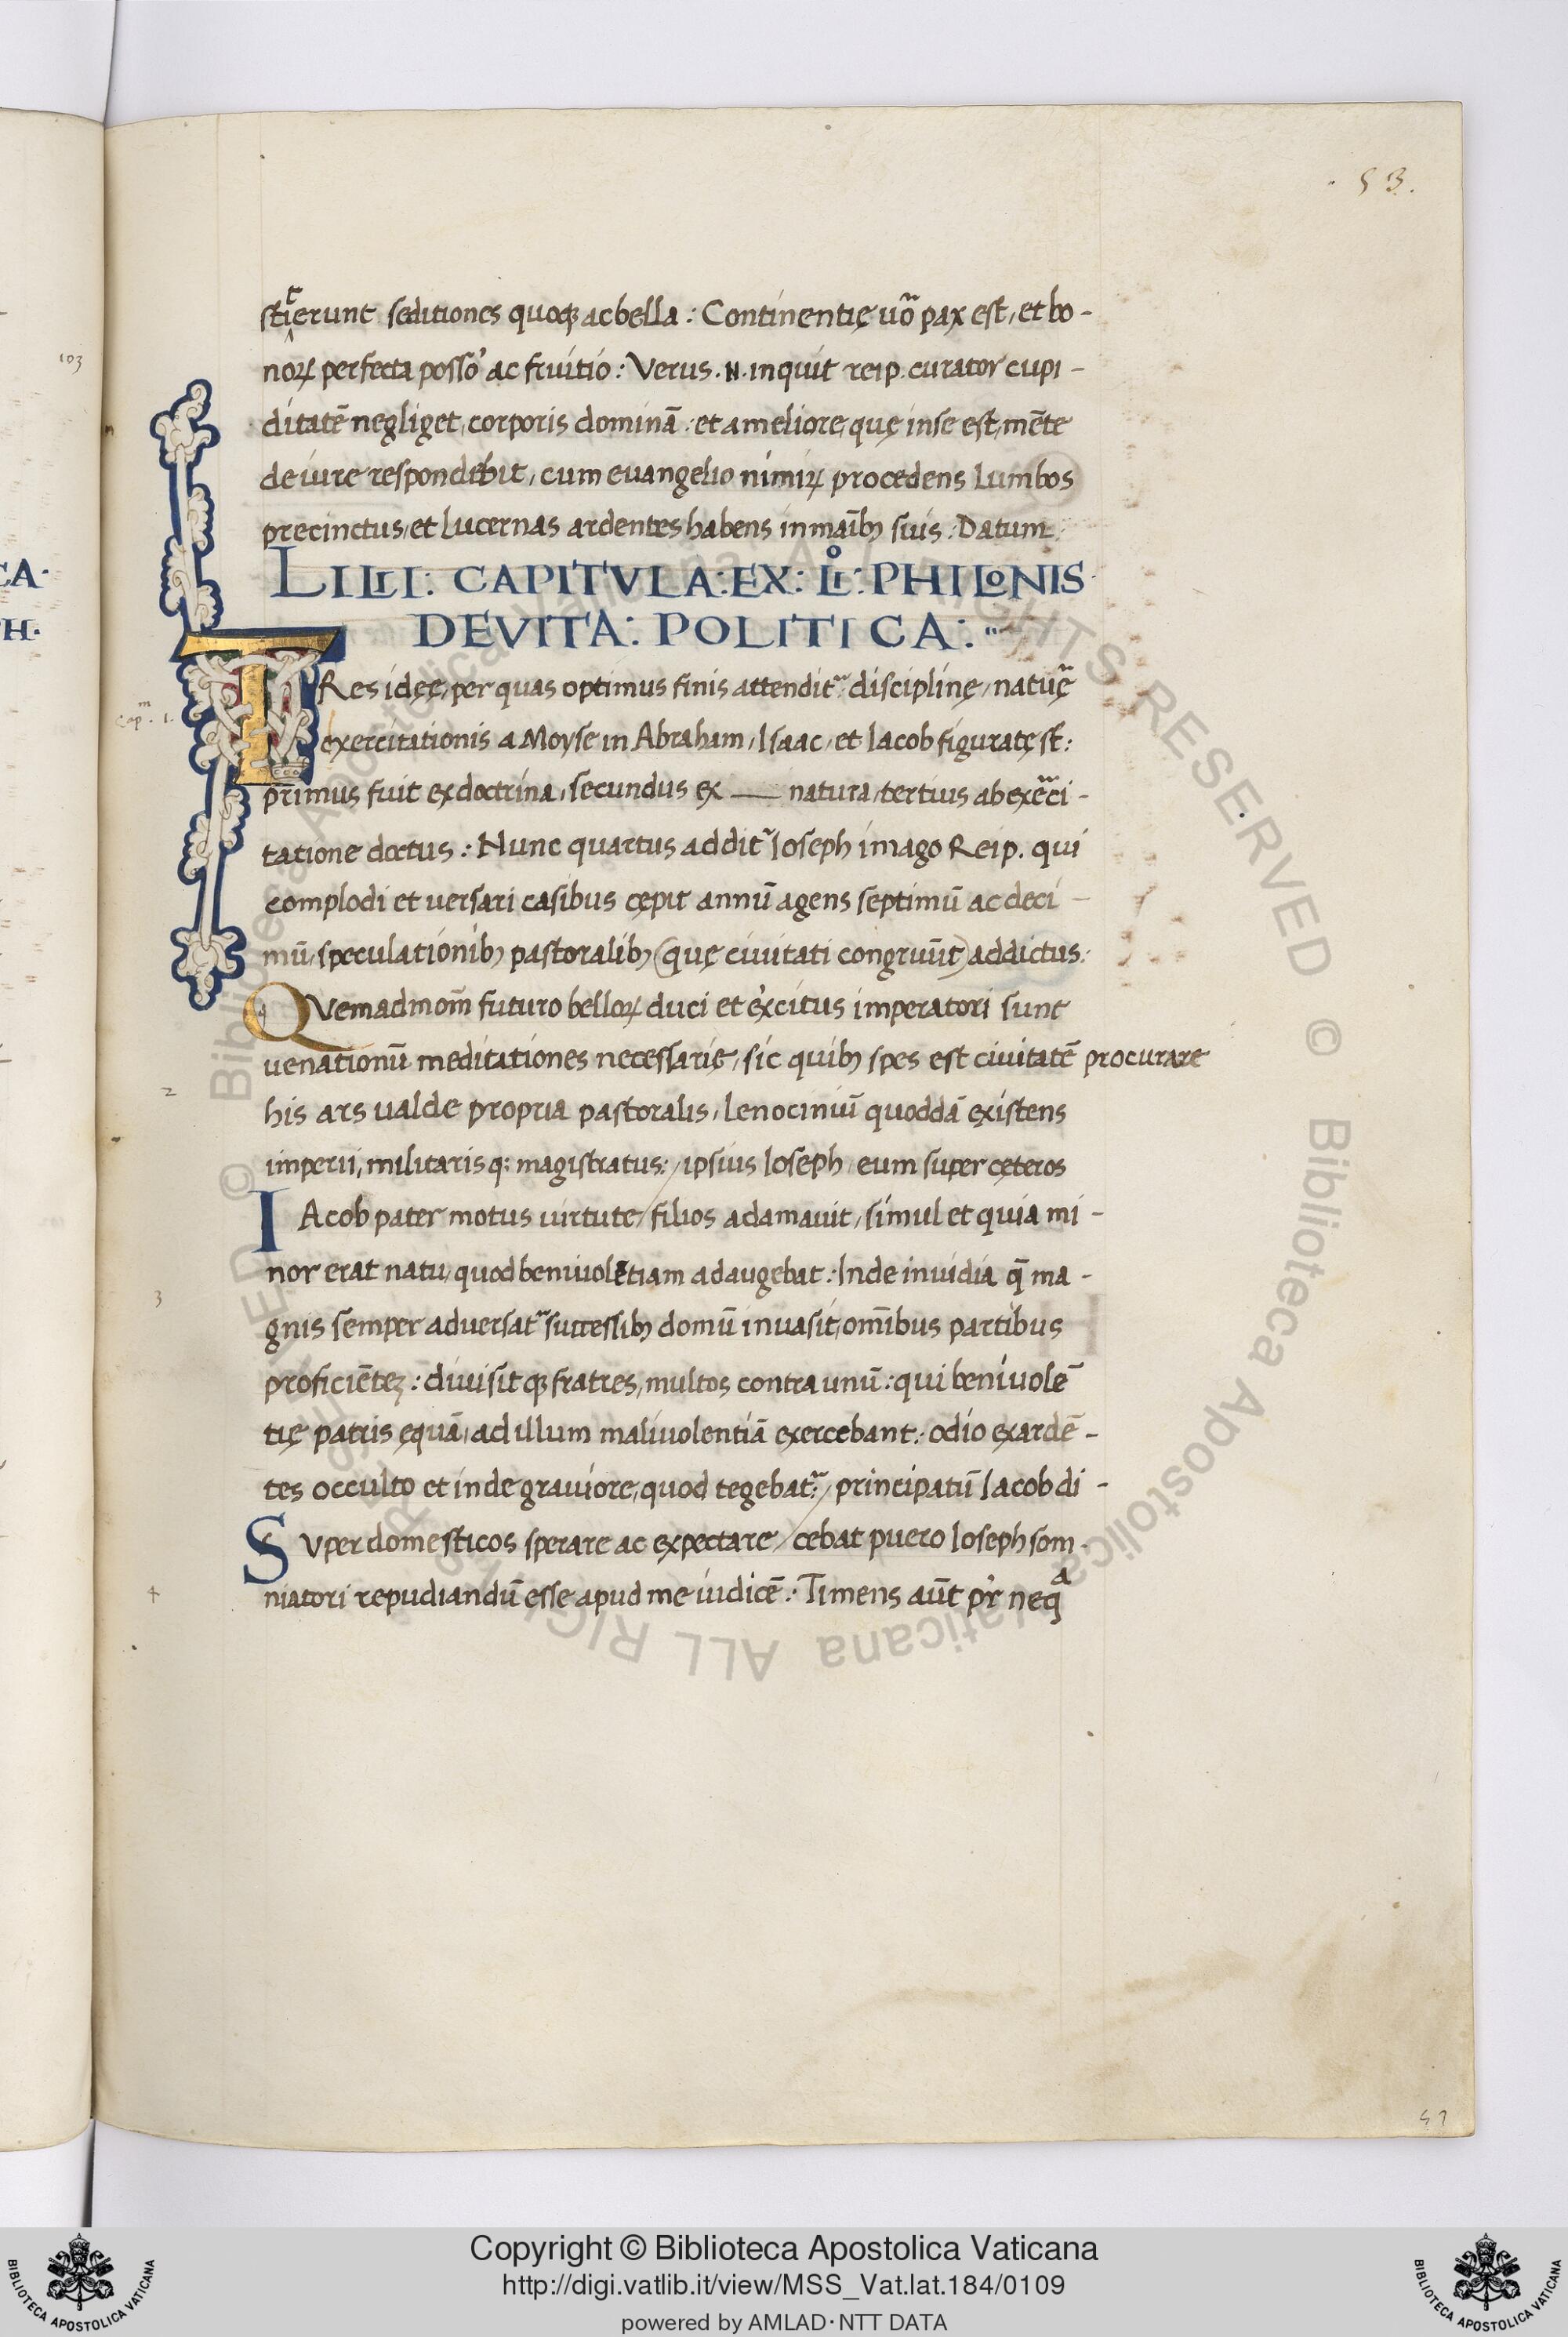 · 53.
sticerunt seditiones quoqꝫ ac bella : Continentię uoᷓ pax est, et bo-
103
noꝝ perfecta posso᾽ ac fruitio : Verus . N . inquit reip. curator cupi-
ditatē negliget, corporis dominā : et a meliore, quę in se est, mēte
de iure respondebit, cum euangelio nimiꝝ procedens Lumbos
precinctus, et Lucernas ardentes habens in maībꝫ suis . Datum
LILII : CAPITVLA : EX : LI° : PHILONIS
DE VITA : POLITICA :
Capm. 1.
TRes idęę, per quas optimus finis attenditᷓ disciplinę, natuęᷓ
exercitationis a Moyse in Abraham, Isaac, et Iacob figuratę sē:
pr̄imus fuit ex doctrina, secundus ex — natura, tertius ab exeᷓci-
tatione doctus : Nunc quartus additᷓ Ioseph imago Reip. qui
complodi et uersari casibus cępit annū agens septimū ac deci-
mū, speculationibꝫ pastoralibꝫ (quę ciuitati congruūt) addictus :
QVemadmom̄ futuro belloꝝ duci et ex᾽citus imperatori sunt
uenationū meditationes necessarię, sic quibꝫ spes est ciuitatē procurare
2
his ars ualde propria pastoralis, lenociniū quoddā existens
imperii, militaris q: magistratus : / ipsius Ioseph eum super cęteros
IAcob pater motus uirtute / filios adamauit, simul et quia mi-
nor erat natu, quod beniuolētiam adaugebat : Inde inuidia q̄ ma-
3
gnis semper aduersatᷓ successibꝫ domū inuasit, om̄ibus partibus
proficiētez : diuisit qꝫ fratres, multos contra unū : qui beniuolē
tię patris ęquā, ad illum maliuolentiā exercebant : odio exardē-
tes occulto et inde grauiore, quod tegebatᷓ : / principatū Iacob di-
SVper domesticos sperare ac expectare / cebat puero Ioseph som-
4
niatori repudiandū esse apud me iudicē : Timens aūt pr᾽ neqᵃ
57
CA·
H·
Copyright © Biblioteca Apostolica Vaticana
http://digi.vatlib.it/view/MSS_Vat.lat.184/0109
powered by AMLAD·NTT DATA
BIBLIOTECA APOSTOLICA VATICANA
BIBLIOTECA APOSTOLICA VATICANA